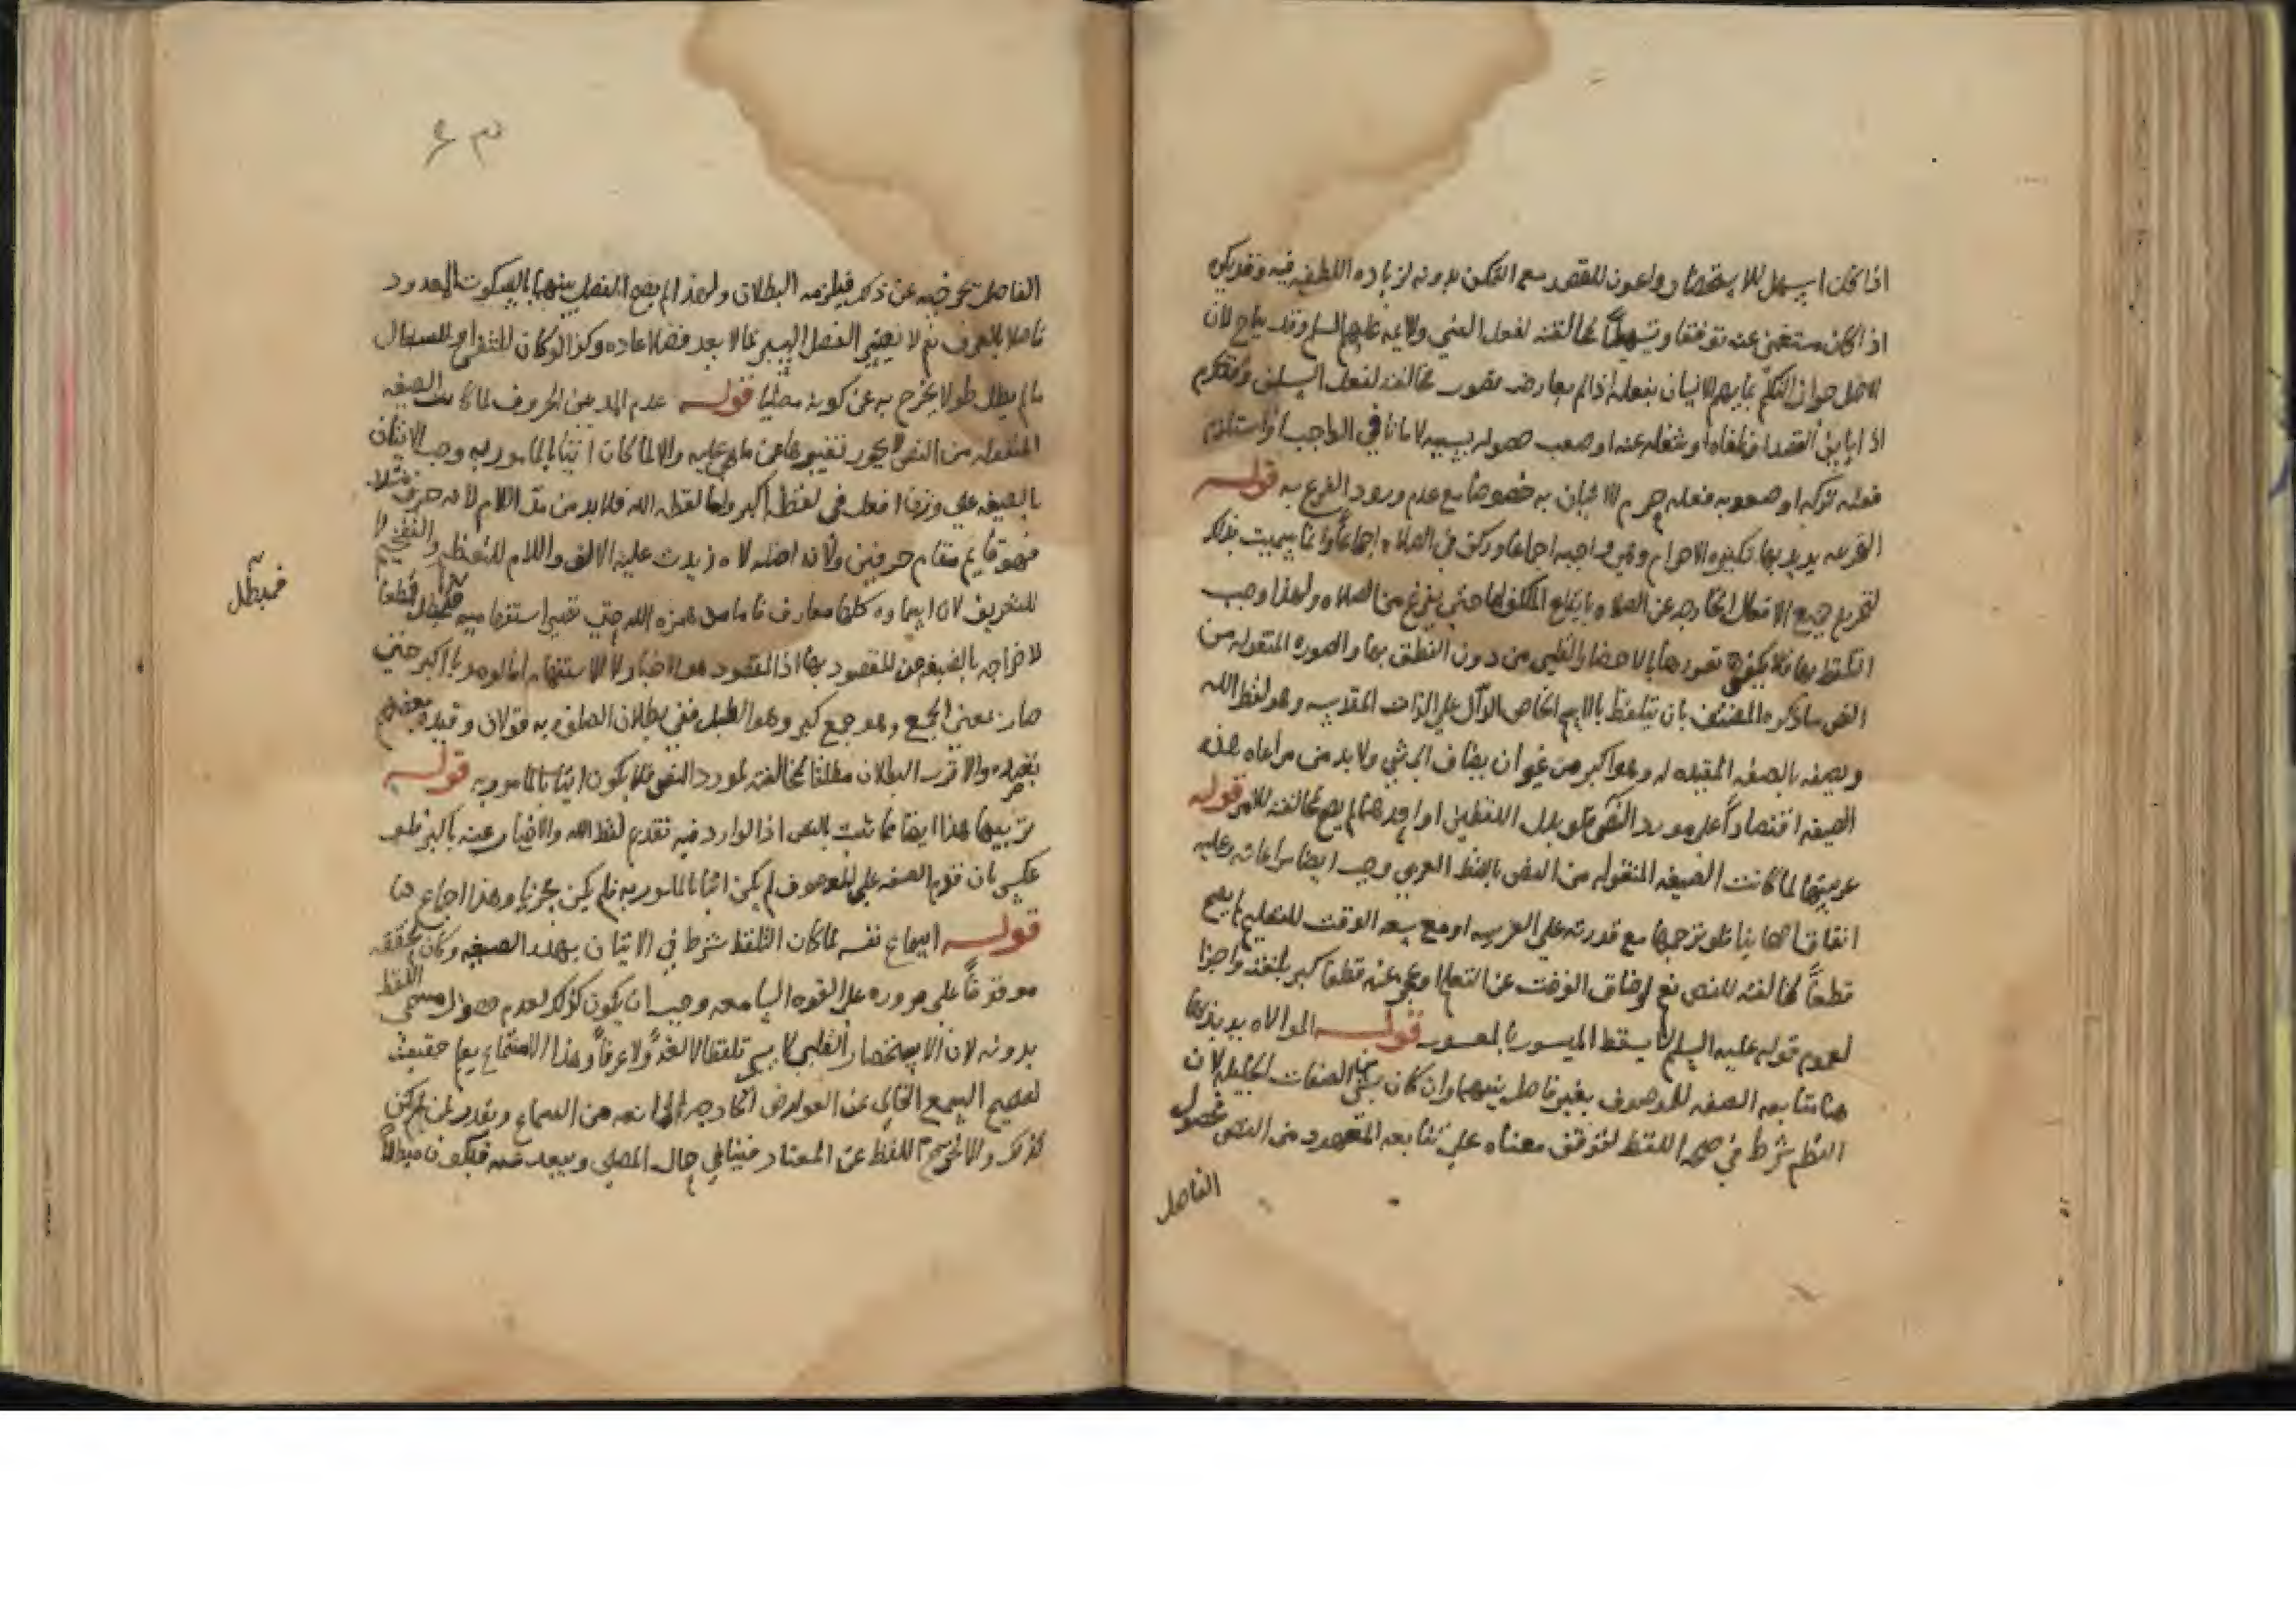 اذا كان اسهل للاستحضار واعون للقصد مع التمكن بدونه لزياده اللطف فيه وقد يكره
اذا كان مستغنى عنه توفقا وتسهيلا لمخالفته لفعل النبي والائمه عليهم السلم وقد يباح لان
الاصل جواز التكلم بما يهم الانسان بفعله اذا لم يعارضه تصور مخالفته لفعل السلف وقد يحرم
اذا القصد او شغله عنه او صعب حصوله بسببه لامانا في الواجب او استلزم
فعله تركه او صعوبه فعله حرم الاتيان به خصوصا مع عدم ورود الشرع به قوله
التحريمه يريد بها تكبيره الاحرام وهي واجبه اجماعا وركن في الصلاه اجماعا وانما سميت بذلك
لتحريم جميع الافعال الخارجه عن الصلاه بايقاع المكلف لها حتى يفرغ من الصلاه ولهذا وجب
التلفظ بها فلا يكفي تصورها بالاحضار القلبي من دون النطق بها والصوره المنقوله من
النص ما ذكره المصنف بان يتلفظ بالاسم الخاص الدال على الذات المقدسه وهو لفظ الله
وبصفه بالصفه المقيده له وهو اكبر من غير ان يضاف الى شي ولا بد من مراعاه هذه
الصيغه اقتصاراً على مورد النص فلو بدل اللفظين او احدهما لم يصح لمخالفته للامر قوله
عربيتها لما كانت الصيغه المنقوله من النص باللفظ العربي وجب ايضا مراعاته وعليه
اتفاق اصحابنا فلو ترجمها مع قدرته على العربيه او مع سعه الوقت للتعلم لم يصح
قطعاً لمخالفته للنص نعم لو ضاق الوقت عن التعلم او عجز عنه قطعا كبر بلغته واجزا
لعموم قوله عليه السلم لا يسقط الميسور بالمعسور قوله الموالاه يريد بها
هنا متابعه الصفه للموصوف بغير فاصل بينهما وان كان بشي من الصفات الجليله لان
النظم شرط في صحه اللفظ لتوقف معناه على تتابعه المعهود من النص فحصول
الفاصل
الفاصل يخرجه عن ذكر فيلزمه البطلان ولهذا لم يصح الفصل بينهما بالسكوت المعدود
فاصلا بالعرف نعم لا يعتبر الفصل اليسير مما لا يعد فصلا عاده وكذا لو كان للتنفس او للسعال
ما لم يطل طولا يخرج به عن كونه مصليا قوله عدم المد بين الحروف لما كانت الصيغه
المنقوله من النص لا يجوز تغييرها عن ما هي عليه والا لما كان اتيا بالمامور به وجب الاتيان
بالصيغه على وزن افعل في لفظ اكبر واما لفظ الله فلا بد من مد اللام لانه حرف مثقل
فهو قايم مقام حرفين ولان اصله لاه زيدت عليه الالف واللام للتعظيم والتفخيم لا
للتعريف لان اسماوه كلها معارف فاما مد همزه الله حتى تصير استفهاميه فمبطل قطعا
لاخراجه بالصيغه عن المقصود بها اذ المقصود هو الاخبار لا الاستفهام اما لو مد با اكبر حتى
صار بمعنى الجمع وهو جمع كبر وهو الطبل ففي بطلان الصلوه به قولان وقيده بعضهم
بقصده والاقرب البطلان مطلقا لمخالفته لمورد النص فلا يكون اتيا بالمامور به قوله
ترتيبها هذا ايضا مما ثبت بالنص اذ الوارد فيه تقديم لفظ الله والاخبار عنه باكبر فلو
عكس بان قدم الصفه على الموصوف لم يكن اتيا بالمامور به فلم يكن مجزيا وهذا اجماع منا
قوله اسماع نفسه لما كان التلفظ شرط في الاتيان بهذه الصيغه وكان تحققه
موقوفاً على مروره على القوه السامعه وجب ان يكون كذلك لعدم حصول مسمى اللفظ
بدونه لان الاستحضار القلبي لا يسمى تلفظا لا لغةً ولا عرفاً وهذا الاستماع يعم حقيقه
لصحيح السمع الخالي عن العوارض الخارجه المانعه من السماع وبقدر لمن لم يكن
كذلك والا لخرج اللفظ عن المعتاد فينافي حال المصلي ويبعد عنه فيكون مبطلا
فمبطل